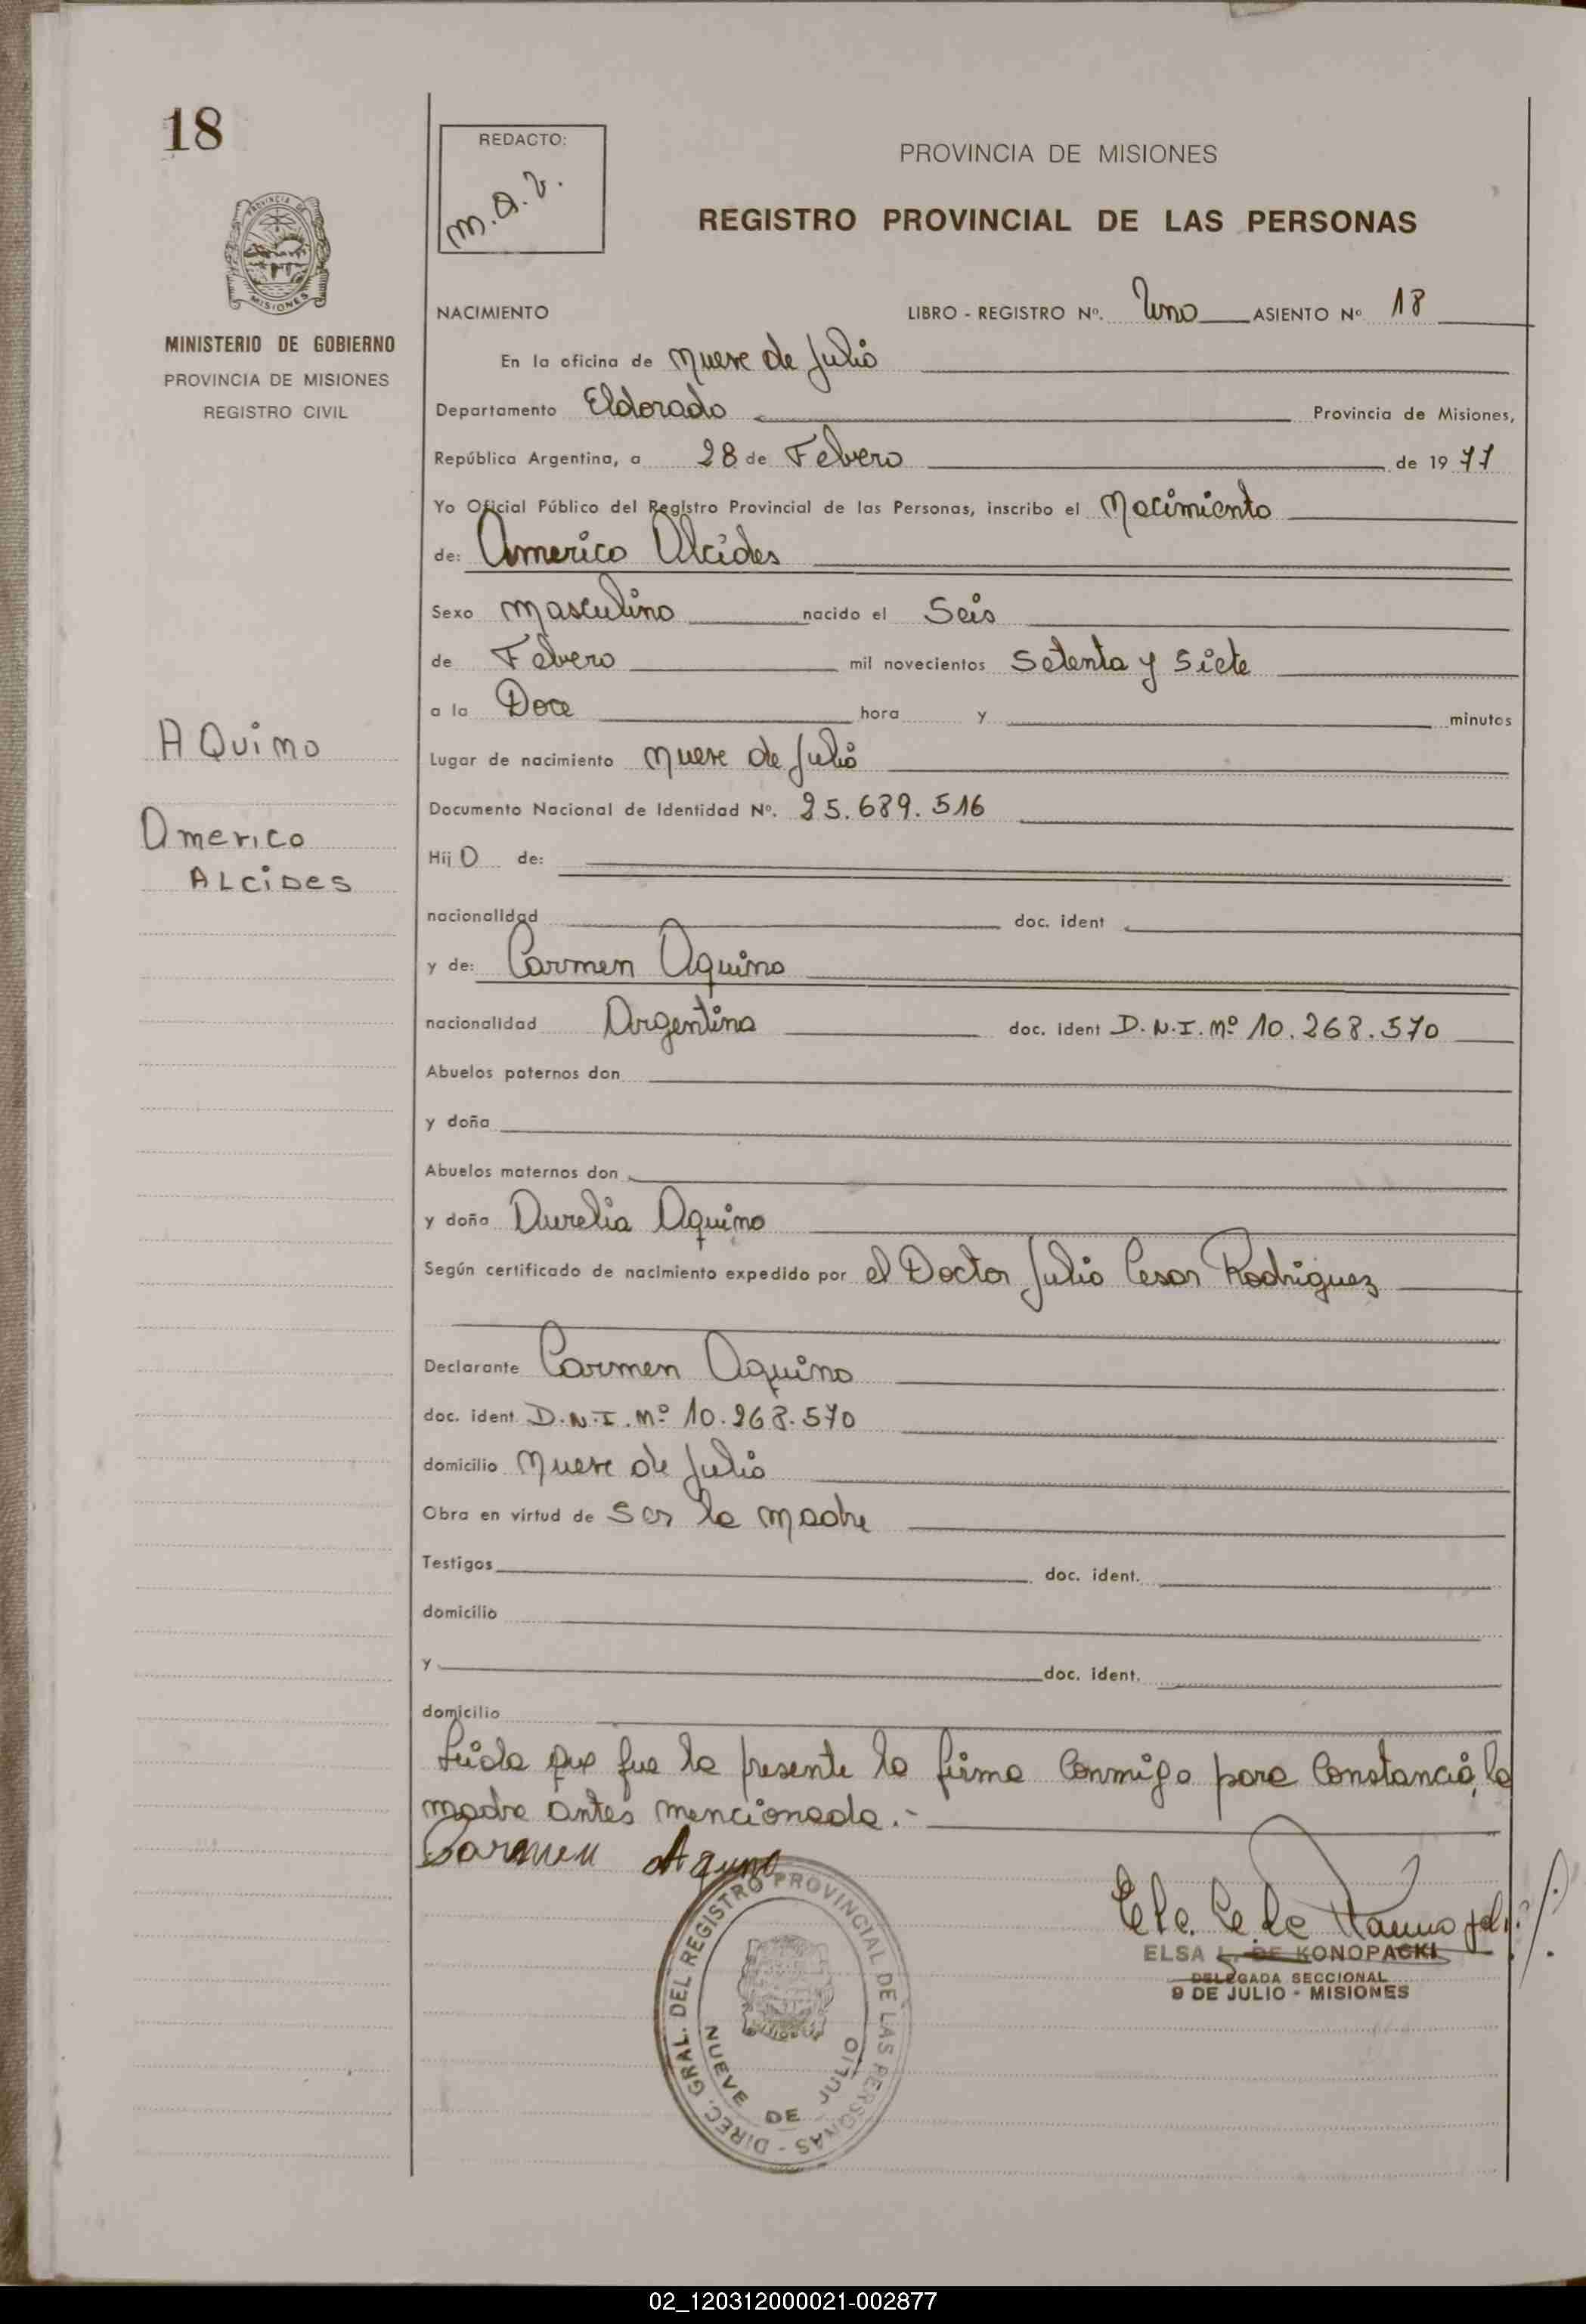 18
REDACTO:
PROVINCIA DE MISIONES
REGISTRO PROVINCIAL DE LAS PERSONAS
MINISTERIO DE GOBIERNO
PROVINCIA DE MISIONES
REGISTRO CIVIL
NACIMIENTO LIBRO - REGISTRO Nº. Uno ASIENTO Nº 18
En la oficina de Nueve de Julio
Departamento Eldorado Provincia de Misiones,
República Argentina, a 28 de Febrero de 19 77
Yo Oficial Público del Registro Provincial de las Personas, inscribo el Nacimiento
de: Americo Alcides
Sexo Masculino nacido el Seis
de Febrero mil novecientos Setenta y Siete
a la Doce hora y minutos
AQuino
Lugar de nacimiento Nueve de Julio
Documento Nacional de Identidad Nº. 25.689.516
Americo
ALCiDes
Hij o de:
nacionalidad doc. ident
y de: Carmen Aquino
nacionalidad Argentina doc. ident D.N.I. Nº 10.268.570
Abuelos paternos don
y doña
Abuelos maternos don
y doña Aurelia Aquino
Según certificado de nacimiento expedido por el Doctor Julio Cesar Rodriguez
Declarante Carmen Aquino
doc. ident. D.N.I. Nº 10.268.570
domicilio Nueve de Julio
Obra en virtud de Ser la Madre
Testigos doc. ident.
domicilio
y doc. ident.
domicilio
Leida que fue la presente la firma Conmigo para Constancia, la
madre antes mencionada.-
Carmen Aquino
ELSA L. DE KONOPACKI
DELEGADA SECCIONAL
9 DE JULIO - MISIONES
DIREC. GRAL. DEL REGISTRO PROVINCIAL DE LAS PERSONAS -
NUEVE DE JULIO
02_120312000021-002877